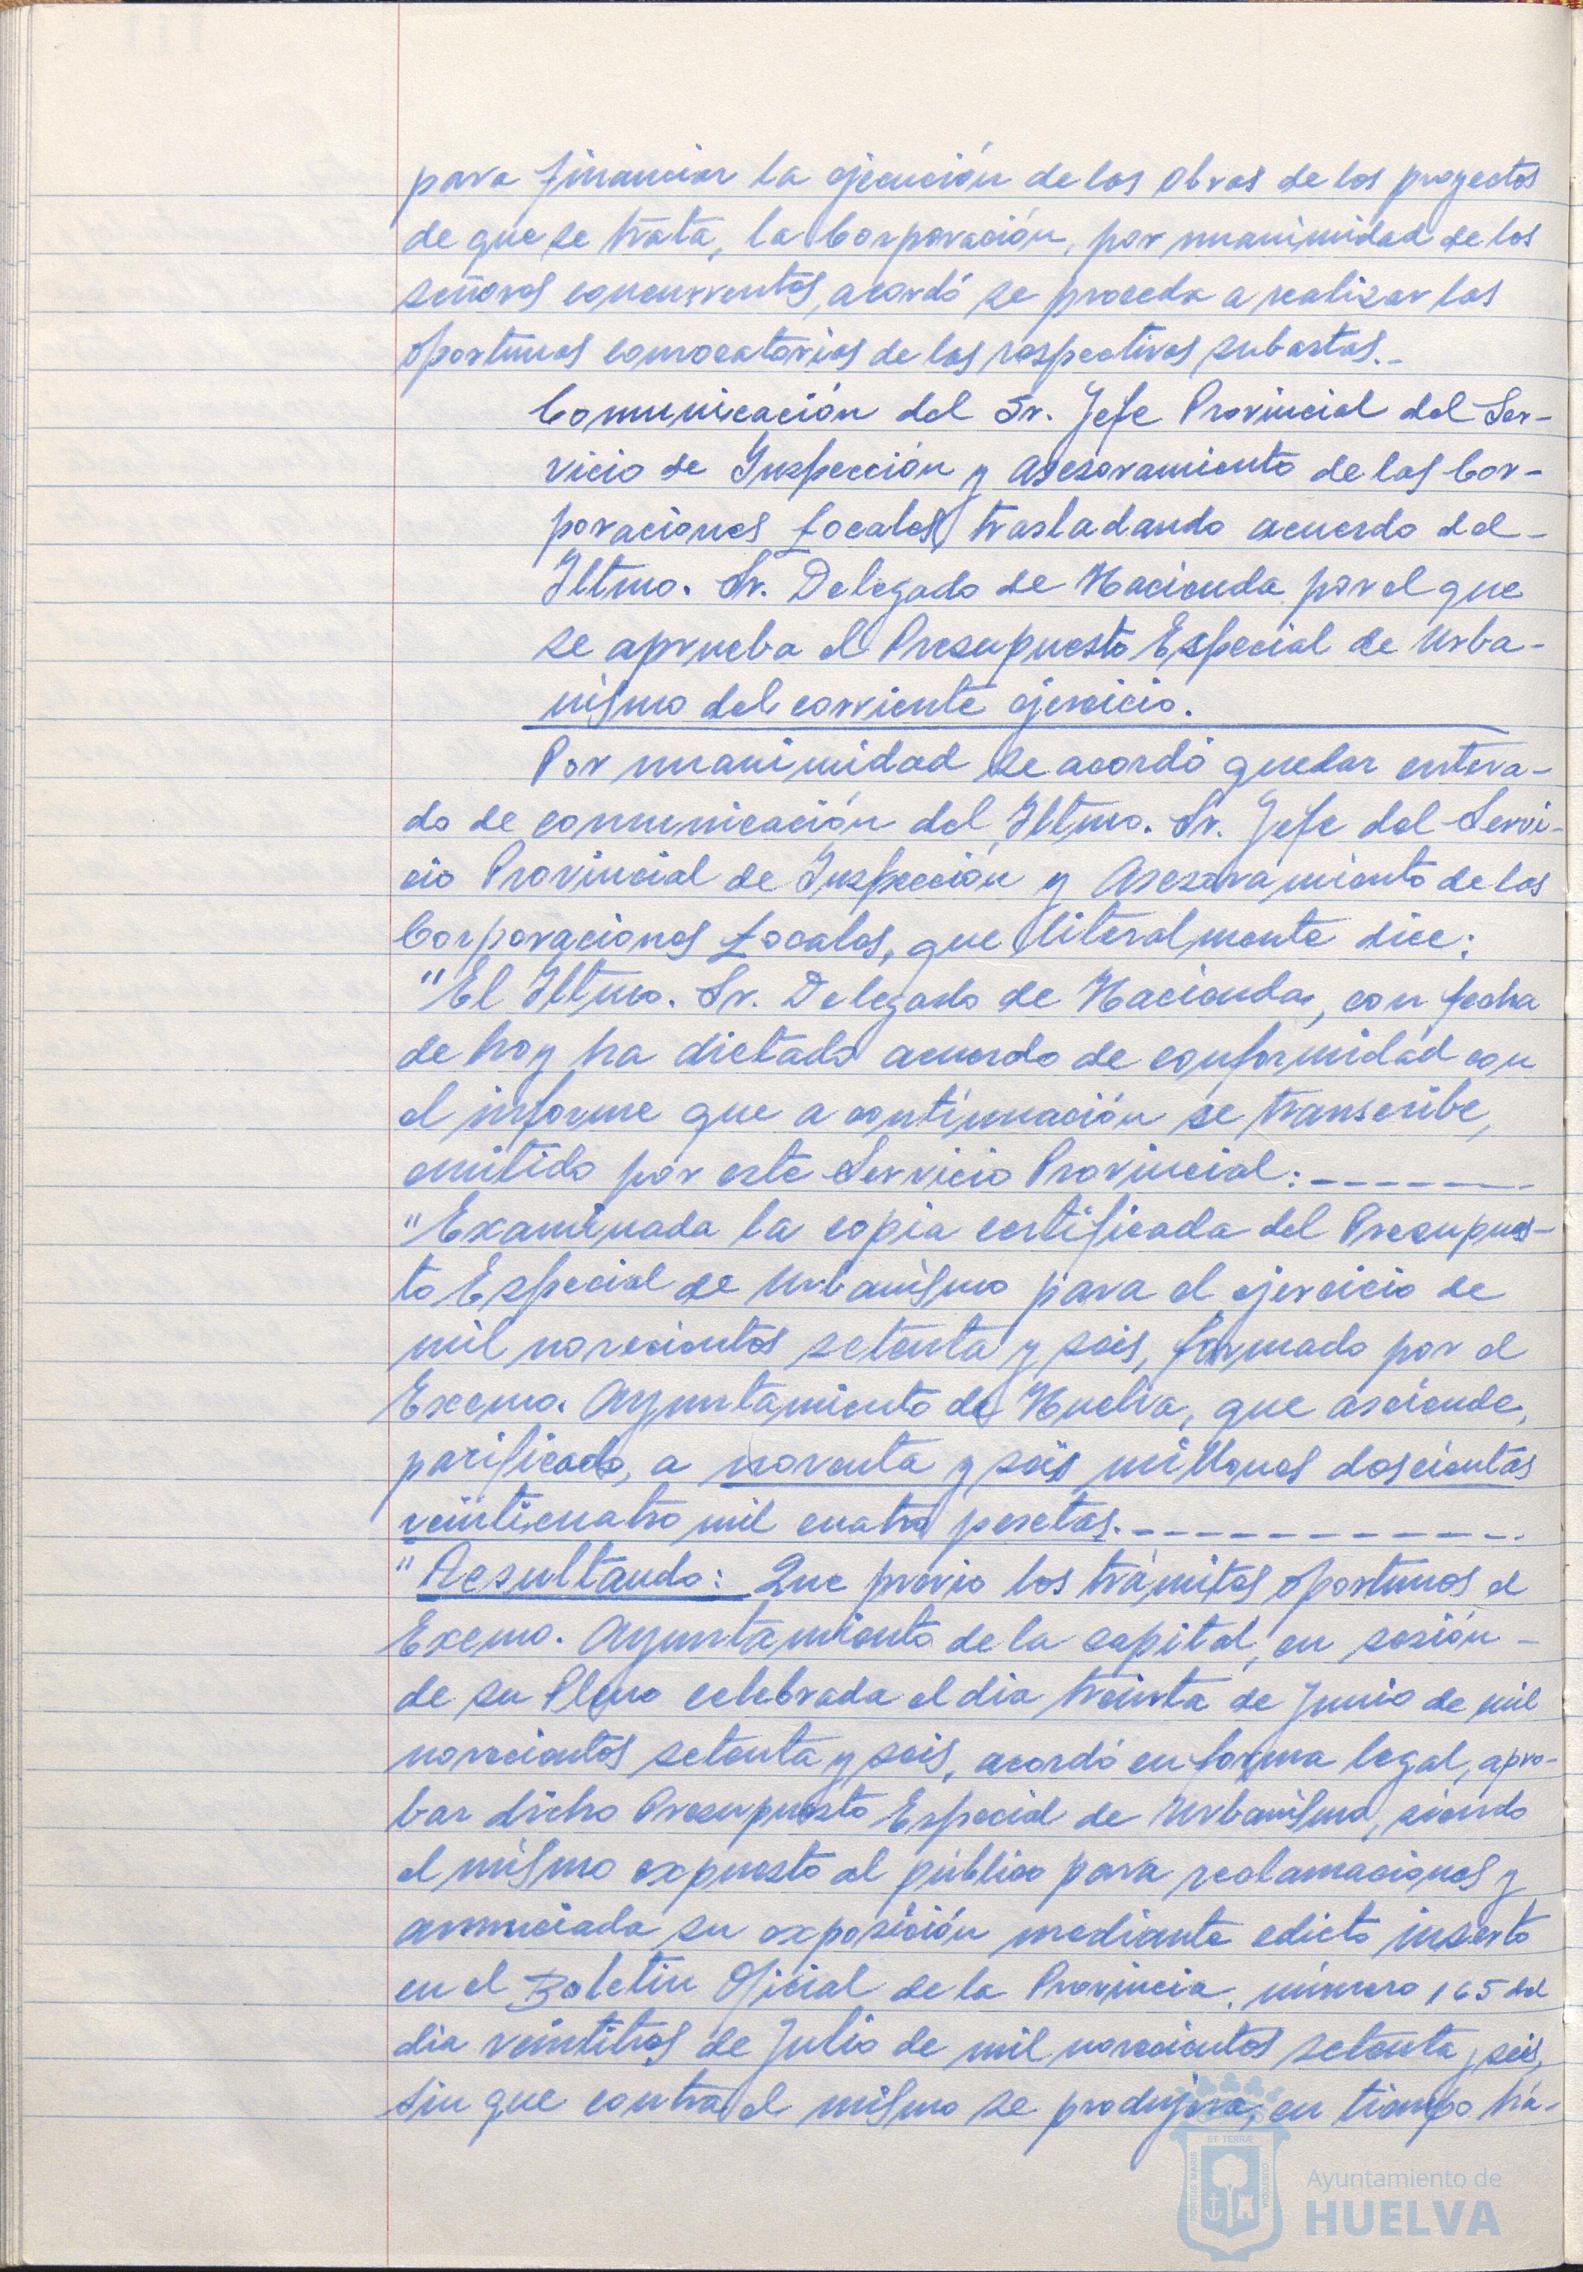 para financiar la ejecución de las obras de los proyectos
de que se trata, la Corporación, por unanimidad de los
señores concurrentes, acordó se proceda a realizar las
oportunas convocatorias de las respectivas subastas.-
Comunicación del Sr. Jefe Provincial del Ser-
vicio de Inspección y Asesoramiento de las Cor-
poraciones Locales, trasladando acuerdo del-
Iltmo. Sr. Delegado de Hacienda por el que
se aprueba el Presupuesto Especial de Urba-
nismo del corriente ejercicio.
Por unanimidad se acordó quedar entera-
do de comunicación del Iltmo. Sr. Jefe del Servi-
cio Provincial de Inspección y Asesoramiento de las
Corporaciones Locales, que literalmente dice:
"El Iltmo. Sr. Delegado de Hacienda, con fecha
de hoy ha dictado acuerdo de conformidad con
el informe que a continuación se transcribe,
emitido por este Servicio Provincial:-------
"Examinada la copia certificada del Presupues-
to Especial de Urbanismo para el ejercicio de
mil novecientos setenta y seis, formado por el
Excmo. Ayuntamiento de Huelva, que asciende,
parificado, a noventa y seis millones doscientas
veinticuatro mil cuatro pesetas.-----------
"Resultando: Que previo los trámites oportunos el
Excmo. Ayuntamiento de la capital, en sesión-
de su Pleno celebrada el dia treinta de Junio de mil
novecientos setenta y seis, acordó en forma legal, apro-
bar dicho Presupuesto Especial de Urbanismo, siendo
el mismo expuesto al público para reclamaciones y
anunciada su exposición mediante edicto inserto
en el Boletin Oficial de la Provincia, número 165 del
dia veintitres de Julio de mil novecientos setenta y seis,
sin que contra el mismo se produjera, en tiempo há-
ET TERRÆ
PORTUS MARIS
CUSTODIA
Ayuntamiento de
HUELVA